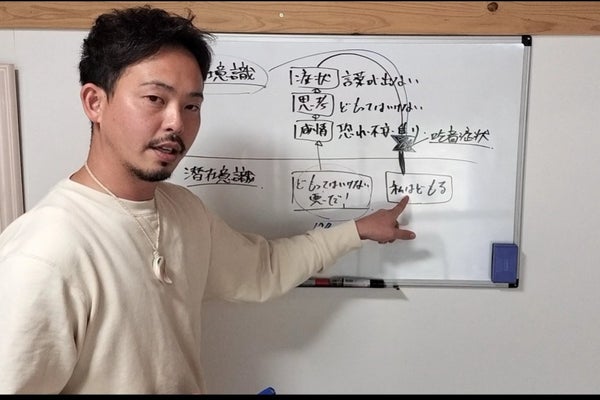 意識
症状 言葉が出ない
思考 どもってはいけない
感情 恐れ・不安・焦り・吃音症状
潜在意識
どもってはいけない
悪だ!
私はどもる